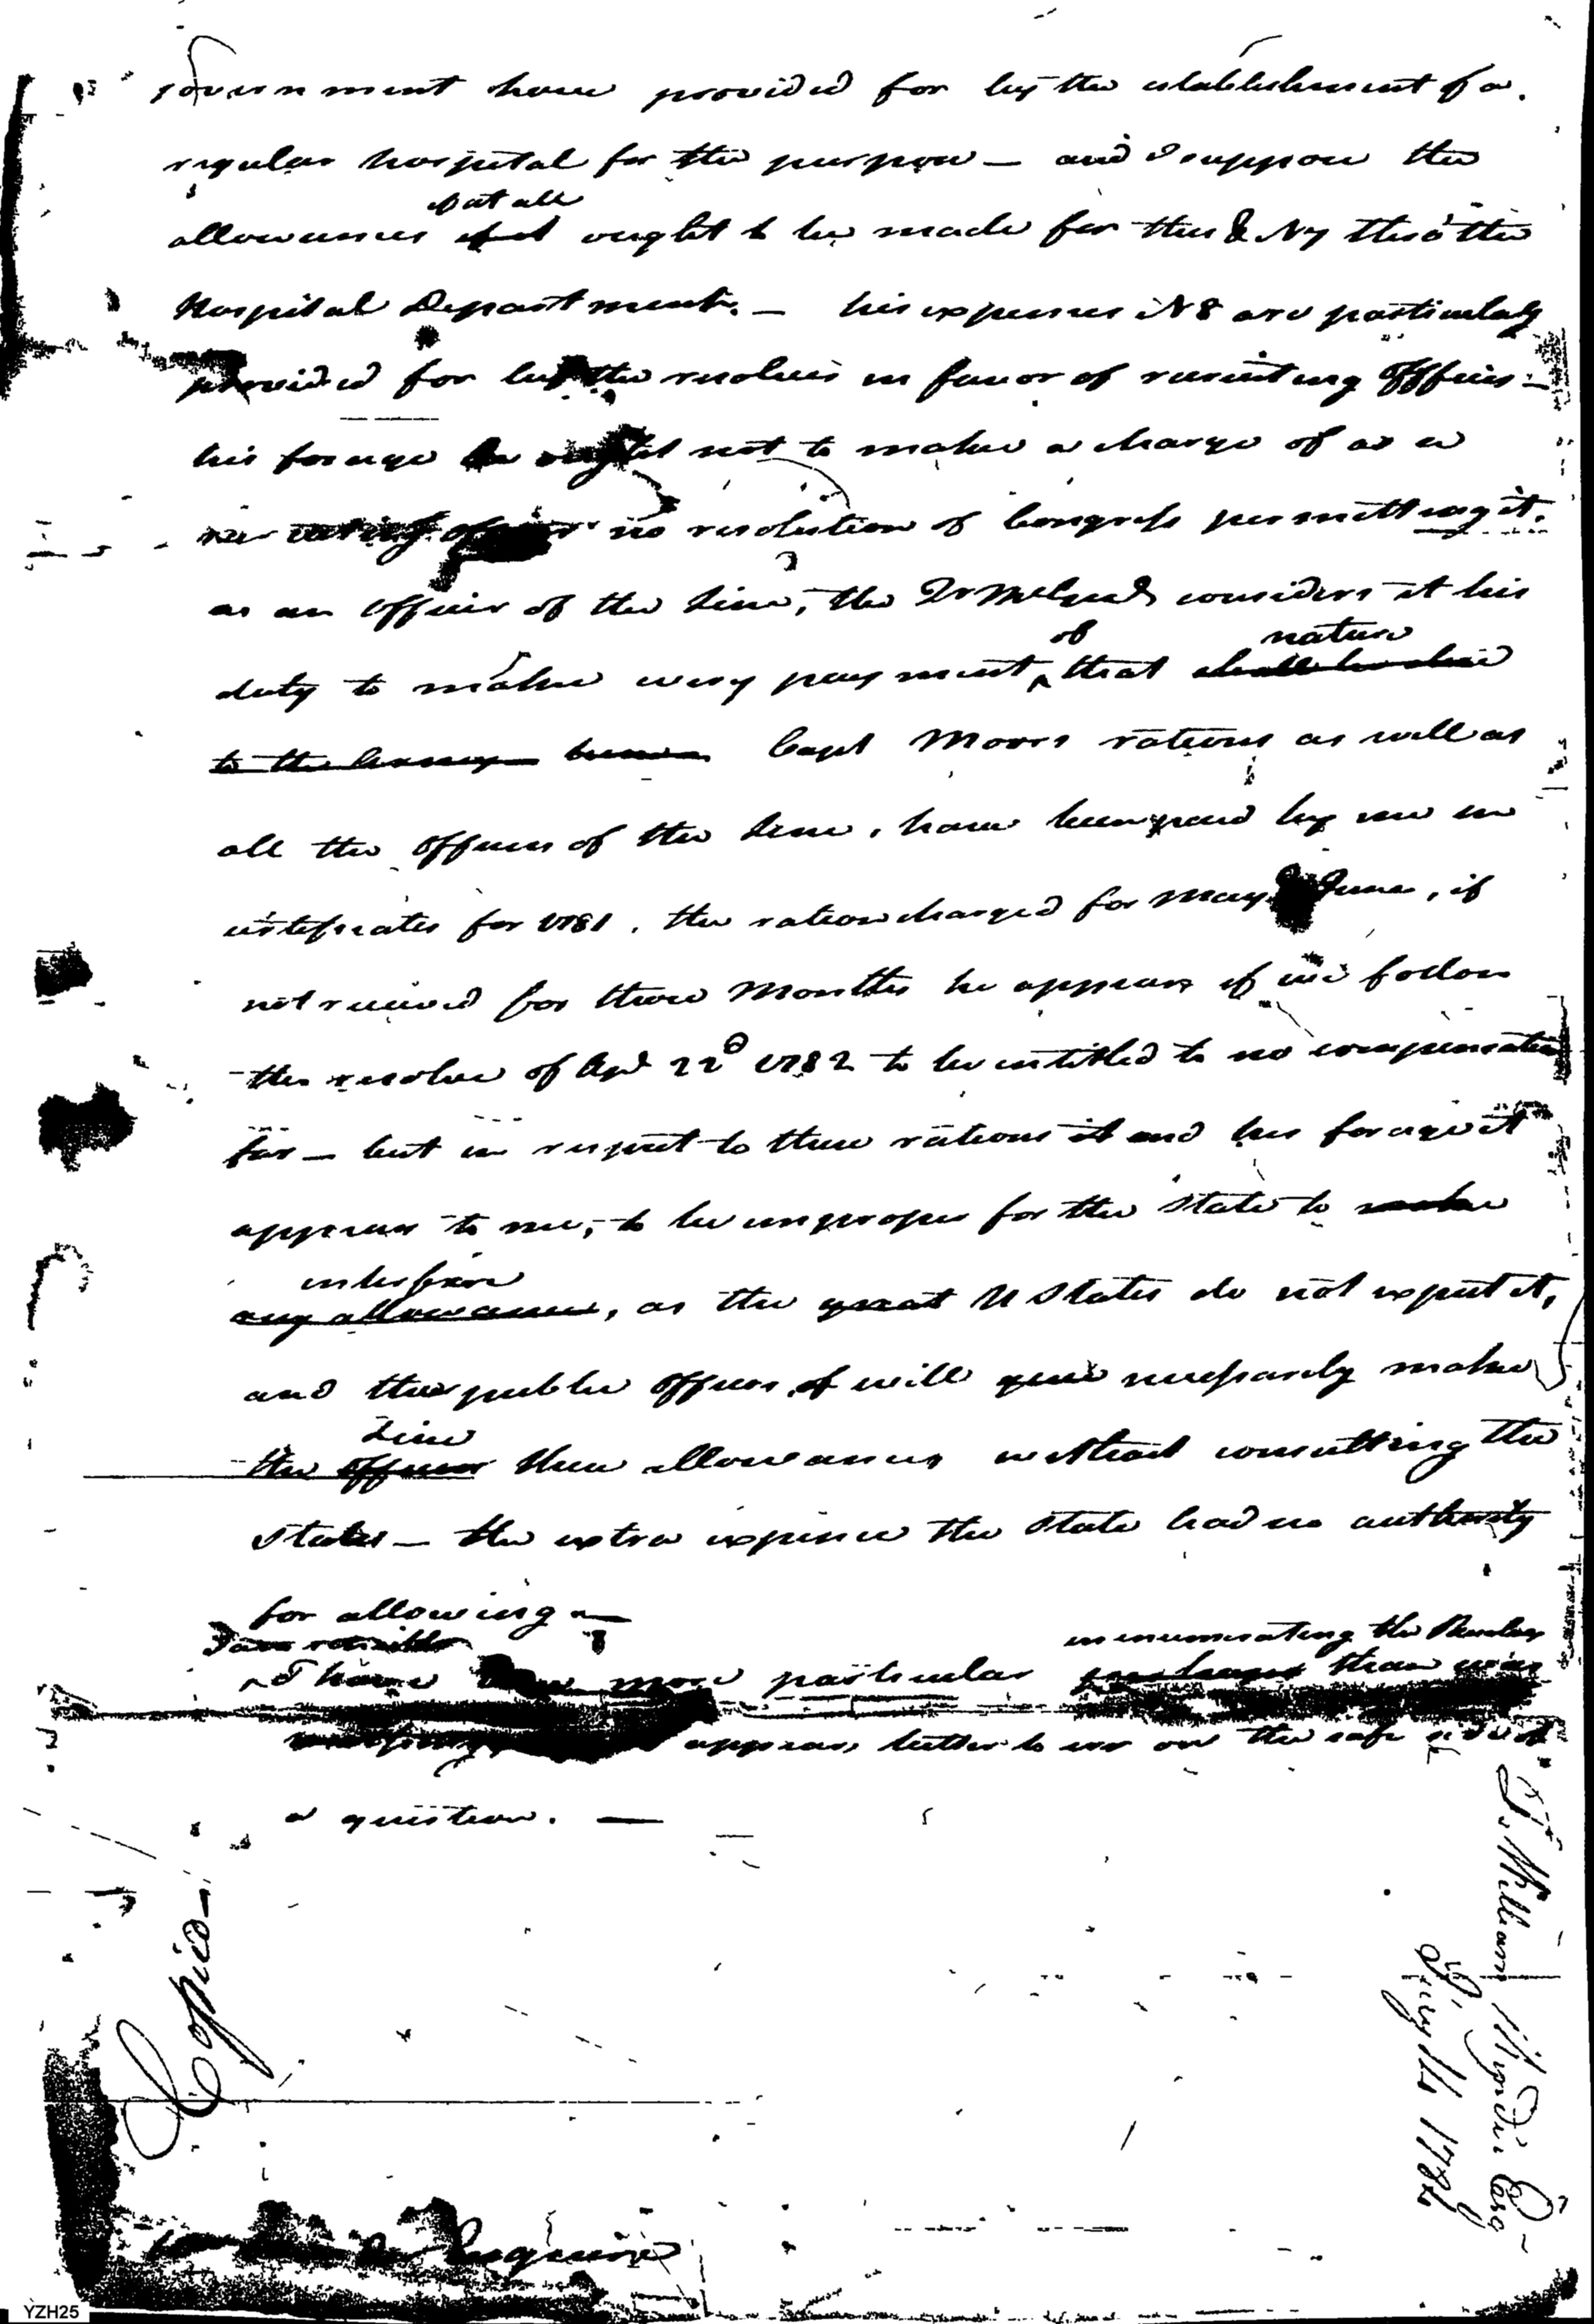 government have provided for by the establishment of a
regular hospital for the purpose — and I suppose the
if at all
allowances ought to be made for these & No 7 thro' the
Hospital Department. — his expenses No 8 are particularly
provided for by the resolves in favor of recruiting Officers —
his forage he ought not to make a charge of as a
recruiting officer no resolution of Congress permitting it.
as an Officer of the Line, the considers it his
of nature
duty to make every payment that shall be due
to the Army Capt Moors rations as well as
all the Officers of the Line, have been paid by me in
certificates for 1781. the ration charged for May & June, if
not received for three Months he appears if we follow
the resolve of Apl 22d 1782 to be intitled to no compensation
for — but in respect to these rations it and his forage it
appears to me, to be improper for the State to make
interfere
any allowance, as the great U States do not expect it,
and their public Officers of will give necessarily make
Line
the officers these allowances without consulting the
States — the extra expence the State had no authority
for allowing —
in enumerating the
I have more particular than was
appears better to err on the safe side of
a question. —
Copied
To William Esq
July 16 1782
Enquire